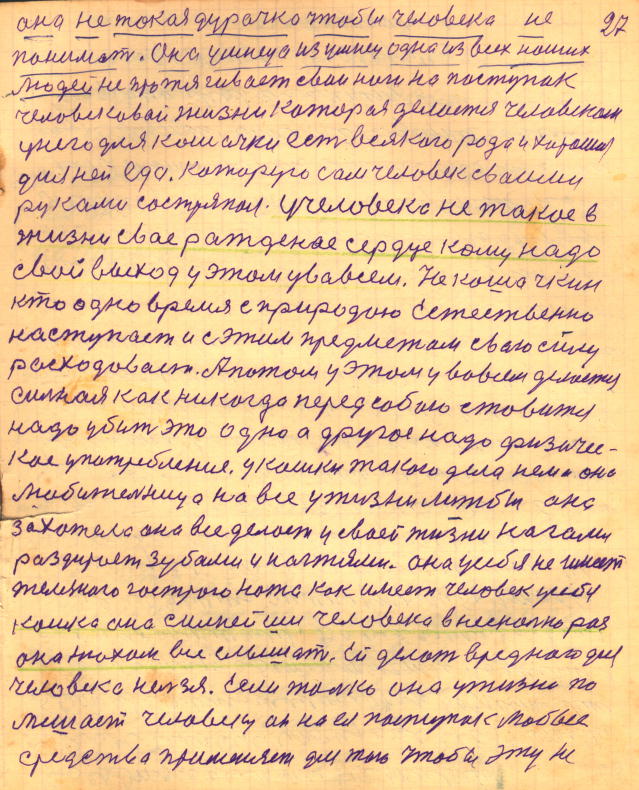 она не такая дурачка чтобы человека не 27
понимат. Она умнеца из умнец одна из всех наших
людей не протягивает сваи ноги на поступак
человековай жизни которая делается человеком
унего для кошачки ест всякого рода и хорошая
для ней еда. Которую сам человек сваими
руками состряпал. Учеловека не такое в
жизни свае ражденае сердце кому надо
свой выход у этом увавсем. Не кошачкин
кто одно время с природаю Естественно
наступает и с этим предметам сваю силу
расходовает. Апотом у этом у вовсем делается
силная как никогда перед собою ставится
надо убит это одно а другое надо физиче-
кое употребление. у кошки такого дела нема она
любителница на все у жизни лишбы она
захотела она все делает у своей жизни нагами
раздирает зубами и ногтями. она усебя не имеет
желенаго гострого ножа как имеет человек усебя
кошка она силнейши человека внесколко раз
она нюхом все слышат. Ей делат вреднаго для
человека нелзя. Если толко она ужизни по
мешает человеку он на ея поступак любые
средства применяет для того чтобы эту не